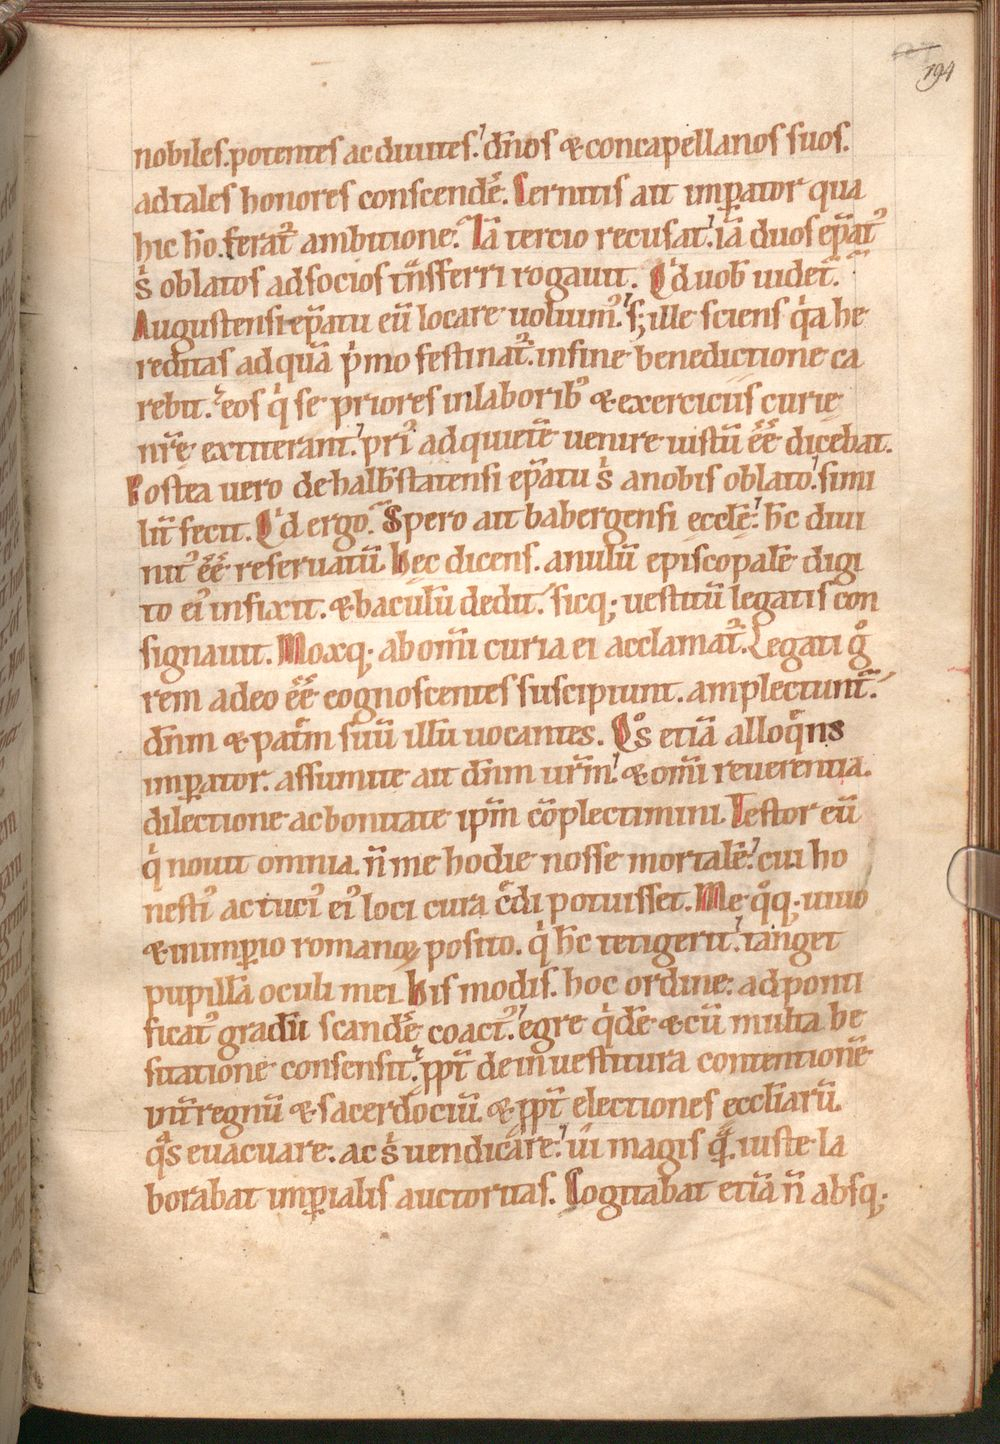 194
nobiles. potentes ac diuites. dños & concapellanos suos.
ad tales honores conscendē. Cernitis ait imꝑator qua
hic hō. ferat᷑ ambitione. Iā tercio recusat. iā duos eꝑat᷒
s̍ oblatos ad socios tñsferri rogauit. Qͥd uob uidet᷑.
Augustensi eꝑatu eū locare uoluim᷒. s; ille sciens qͥa he
reditas ad quā pͥmo festinat᷑. in fine benedictione ca
rebit. eos qͥ se priores in laborib᷒ & exerciciis curię
nr̄ę extiterant. pri᷒ ad quietē uenire iustū ēē dicebat.
Postea uero de halb̄statensi eꝑatu s̍ a nobis oblato. simi
lit̄ fecit. Qͥd ergo. Spero ait babergensi ecclę̄. hc̄ diui
nit᷒ ēē reseruatū. Hec dicens. anulū episcopalē digi
to ei᷒ infixit. & baculū dedit. sicq; uestitū legatis con
signauit. Moxq; ab om̄i curia ei acclamat᷑. Legati gͦ
rem adeo ēē cognoscentes suscipiunt. amplectunt᷑.
dñm & pat᷑m suū illū uocantes. Qͦs etiā alloqͦns
imꝑator. assumite ait dñm ur̄m. & om̄i reuerentia.
dilectione ac bonitate ip̄m cōplectimini. Testor eū
qͥ nouit omnia. n̄ me hodie nosse mortalē. cui ho
nesti᷒ ac tuci᷒ ei᷒ loci cura c᷑di potuisset. Me qͦq; uiuo
& in imꝑio romanoꝝ posito. qͥ hc̄ tetigerit. tanget
pupillā oculi mei. His modis. hoc ordine. ad ponti
ficat᷒ gradū scandē coact᷒. egre qͥdē & cū multa he
sitatione consensit. ꝓpt̄ de inuestitura contentionē
int̄ regnū & sacerdociū. & ꝓpt̄ electiones ecclīarū.
qͣs euacuare. ac s̍ uendicare. ui magis qͣ̄. iuste la
borabat imꝑialis auctoritas. Cogitabat etiā n̄ absq;